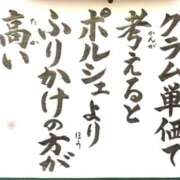 グラム単価で
考えると
かんが
ポルシェより
ふりかけの方が
ほう
高い
たか